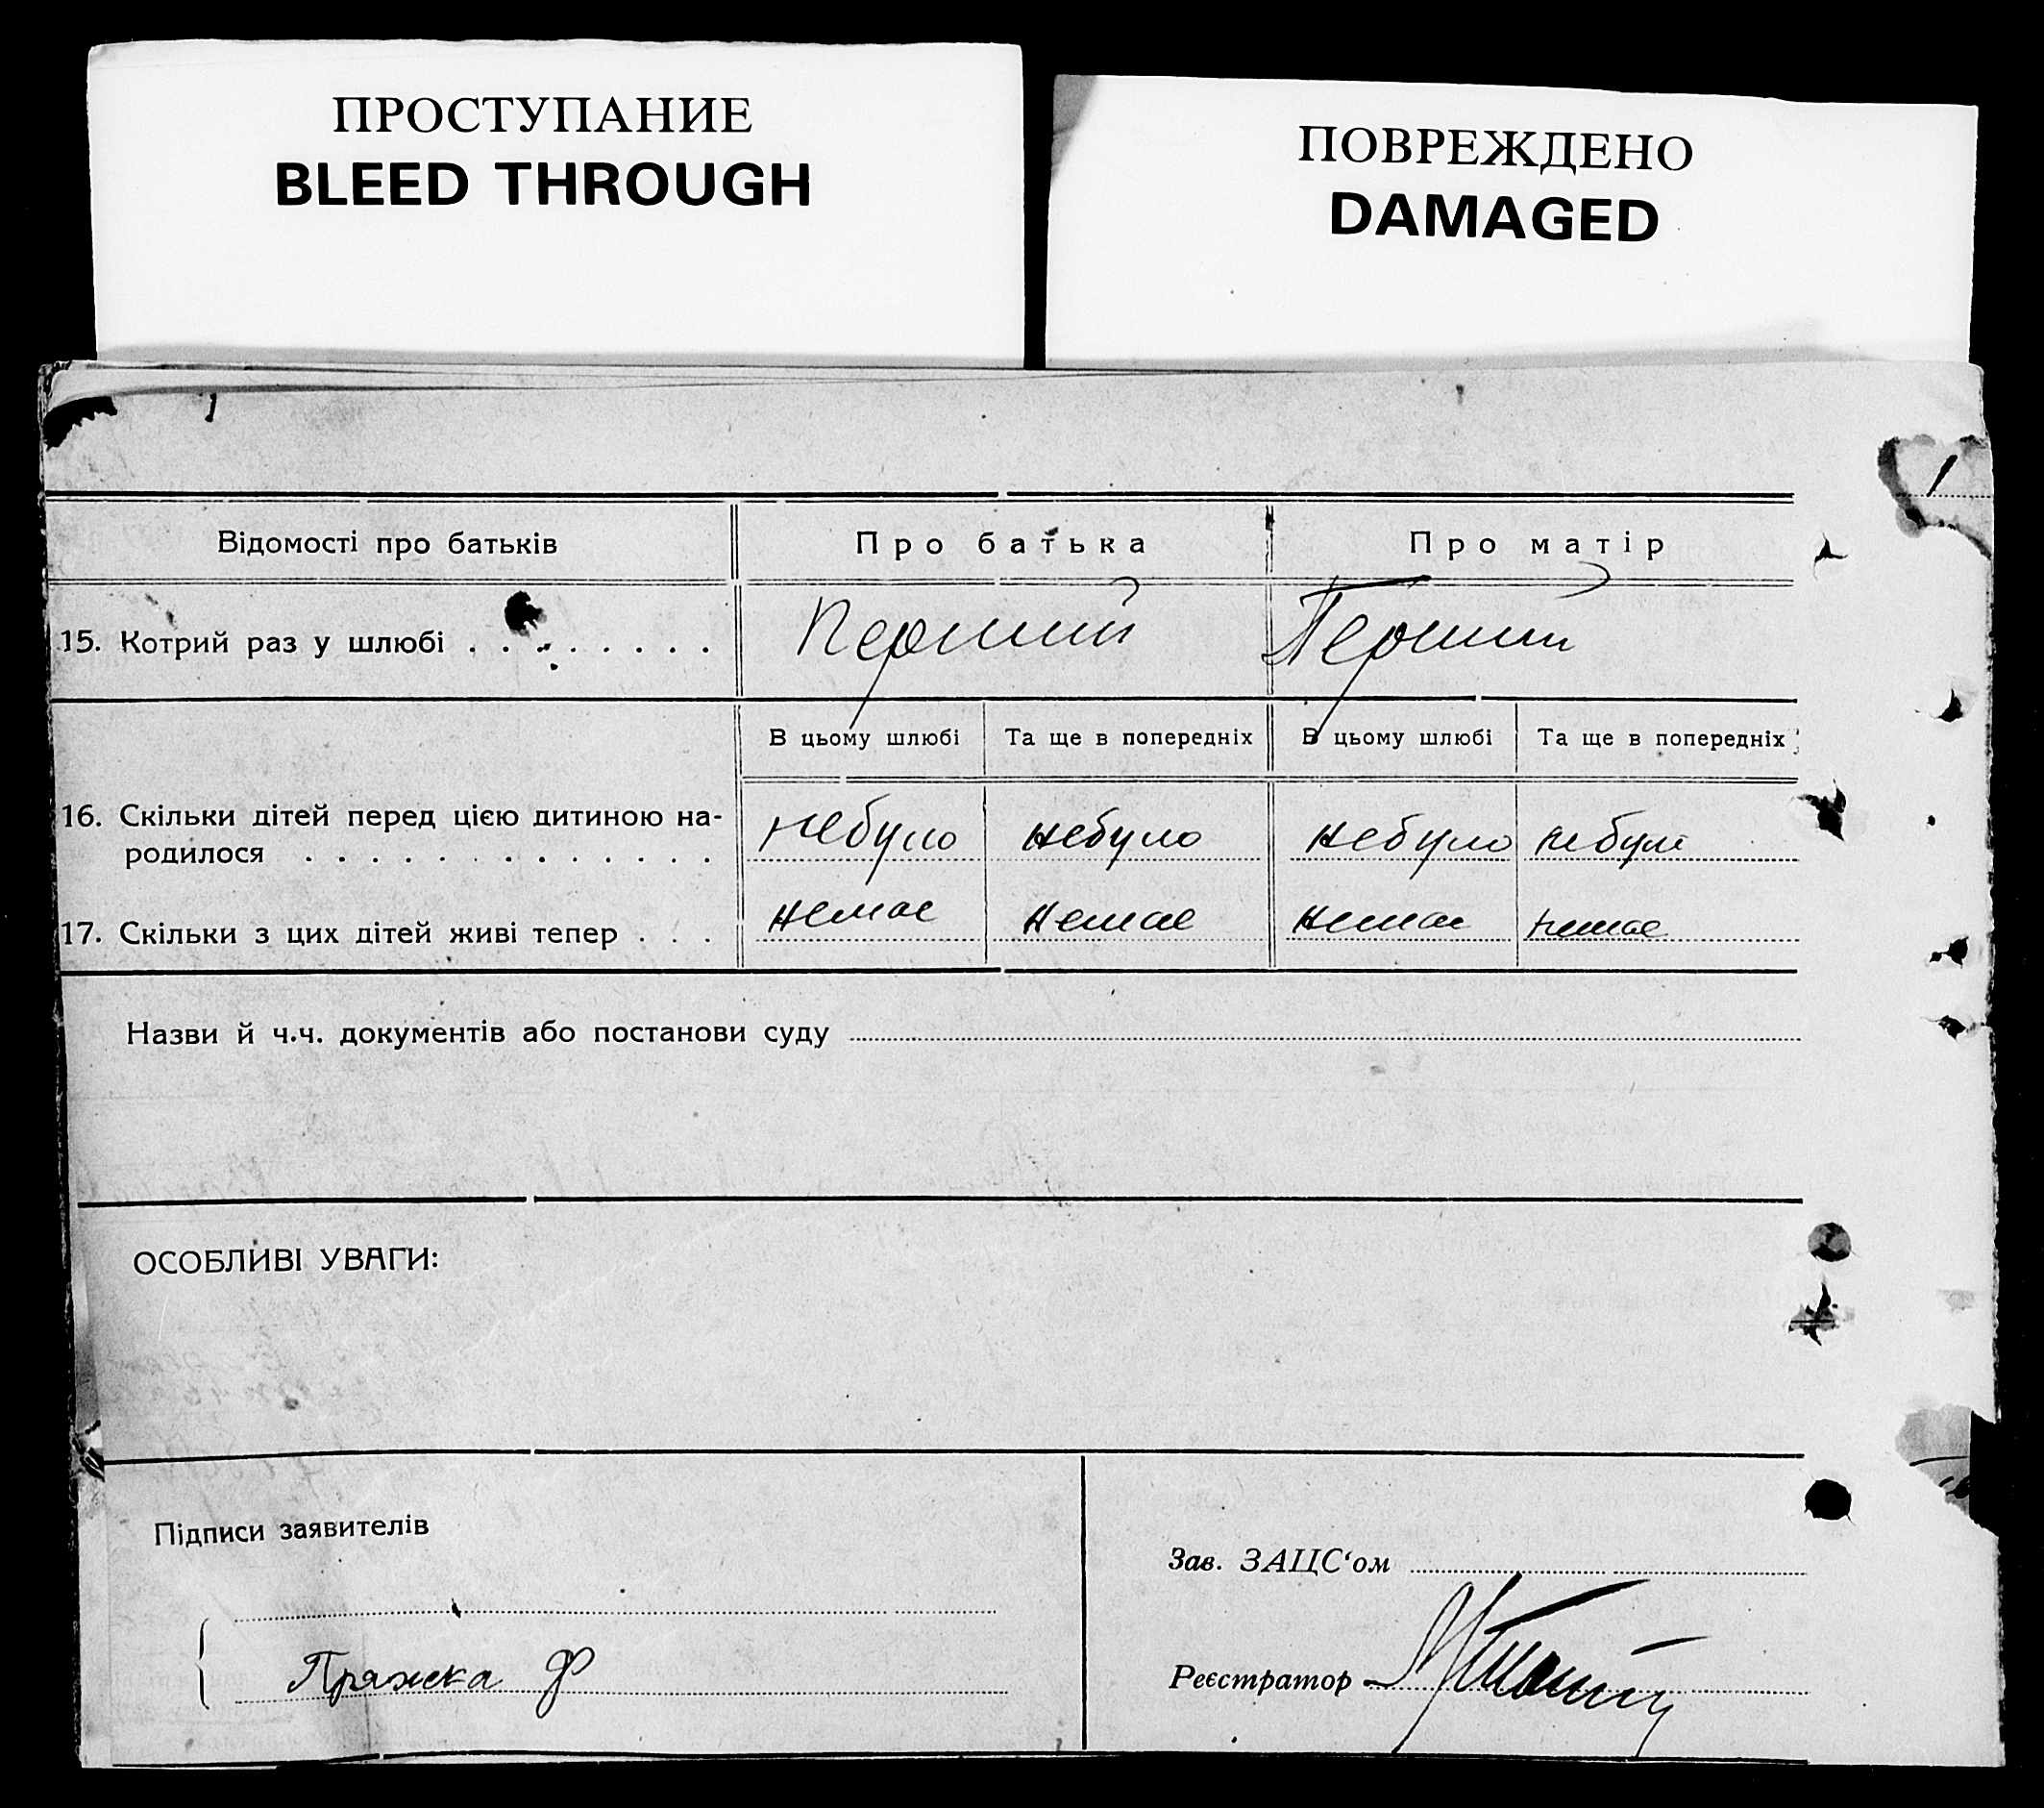 ПРОСТУПАНИЕ
BLEED THROUGH
ПОВРЕЖДЕНО
DAMAGED
1
Відомості про батьків Про батька Про матір
15. Котрий раз у шлюбі . . . . . . . . Перший Перший
В цьому шлюбі Та ще в попередніх В цьому шлюбі Та ще в попередніх
16. Скільки дітей перед цією дитиною на-
родилося . . . . . . . . . . . . . небуло небуло небуло небуло
17. Скільки з цих дітей живі тепер . . . немає немає немає немає
Назви й ч.ч. документів або постанови суду
ОСОБЛИВІ УВАГИ:
Підписи заявителів
Зав. ЗАЦС‘ом
Пряжка Ф
Реєстратор